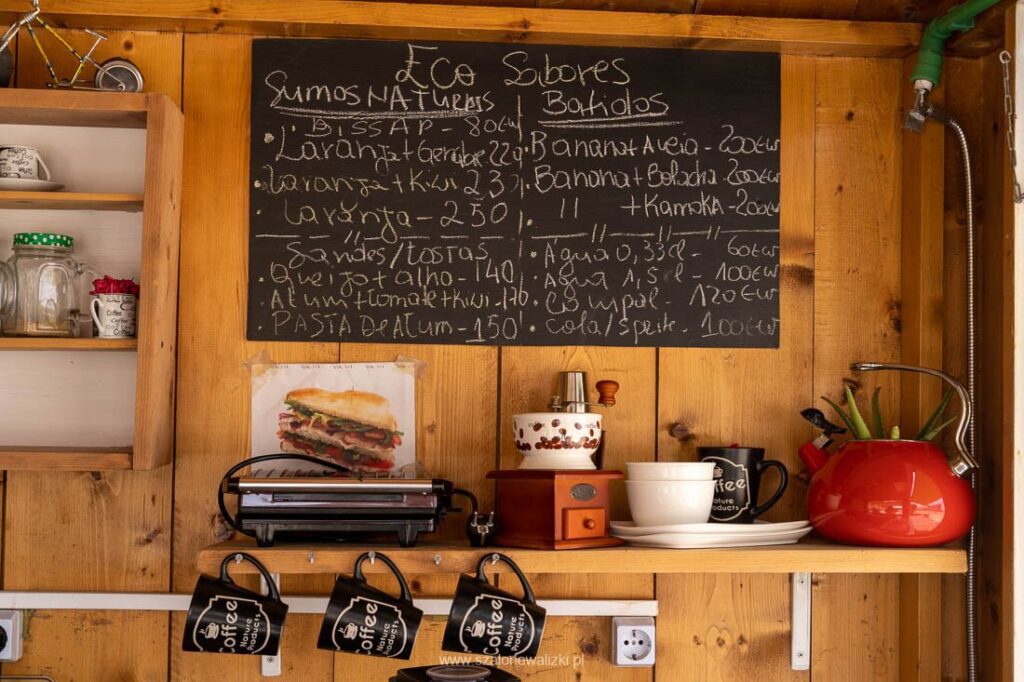 Eco Sabores
Sumos NATURAIS
• BISSAP - 80
Laranja + Gengibre 22
• Laranja + Kiwi 23
• Laranja - 250
Sandes/tostas
• Queijo + alho - 140
• Atum + tomate + Kiwi - 170
• PASTA De Atum - 150
Batidos
• Banana + Aveia - 200
• Banana + Bolacha 200
• 11 + KamoKA - 200
• Agua 0,33cl - 60
• Agua 1,5l - 100
• Compal - 120
• cola/sprite - 100
Coffee
Coffee
Nature
Products
Coffee
Nature
Products
Coffee
Nature
Products
Coffee
Nature
Products
www.szalonewalizki.pl